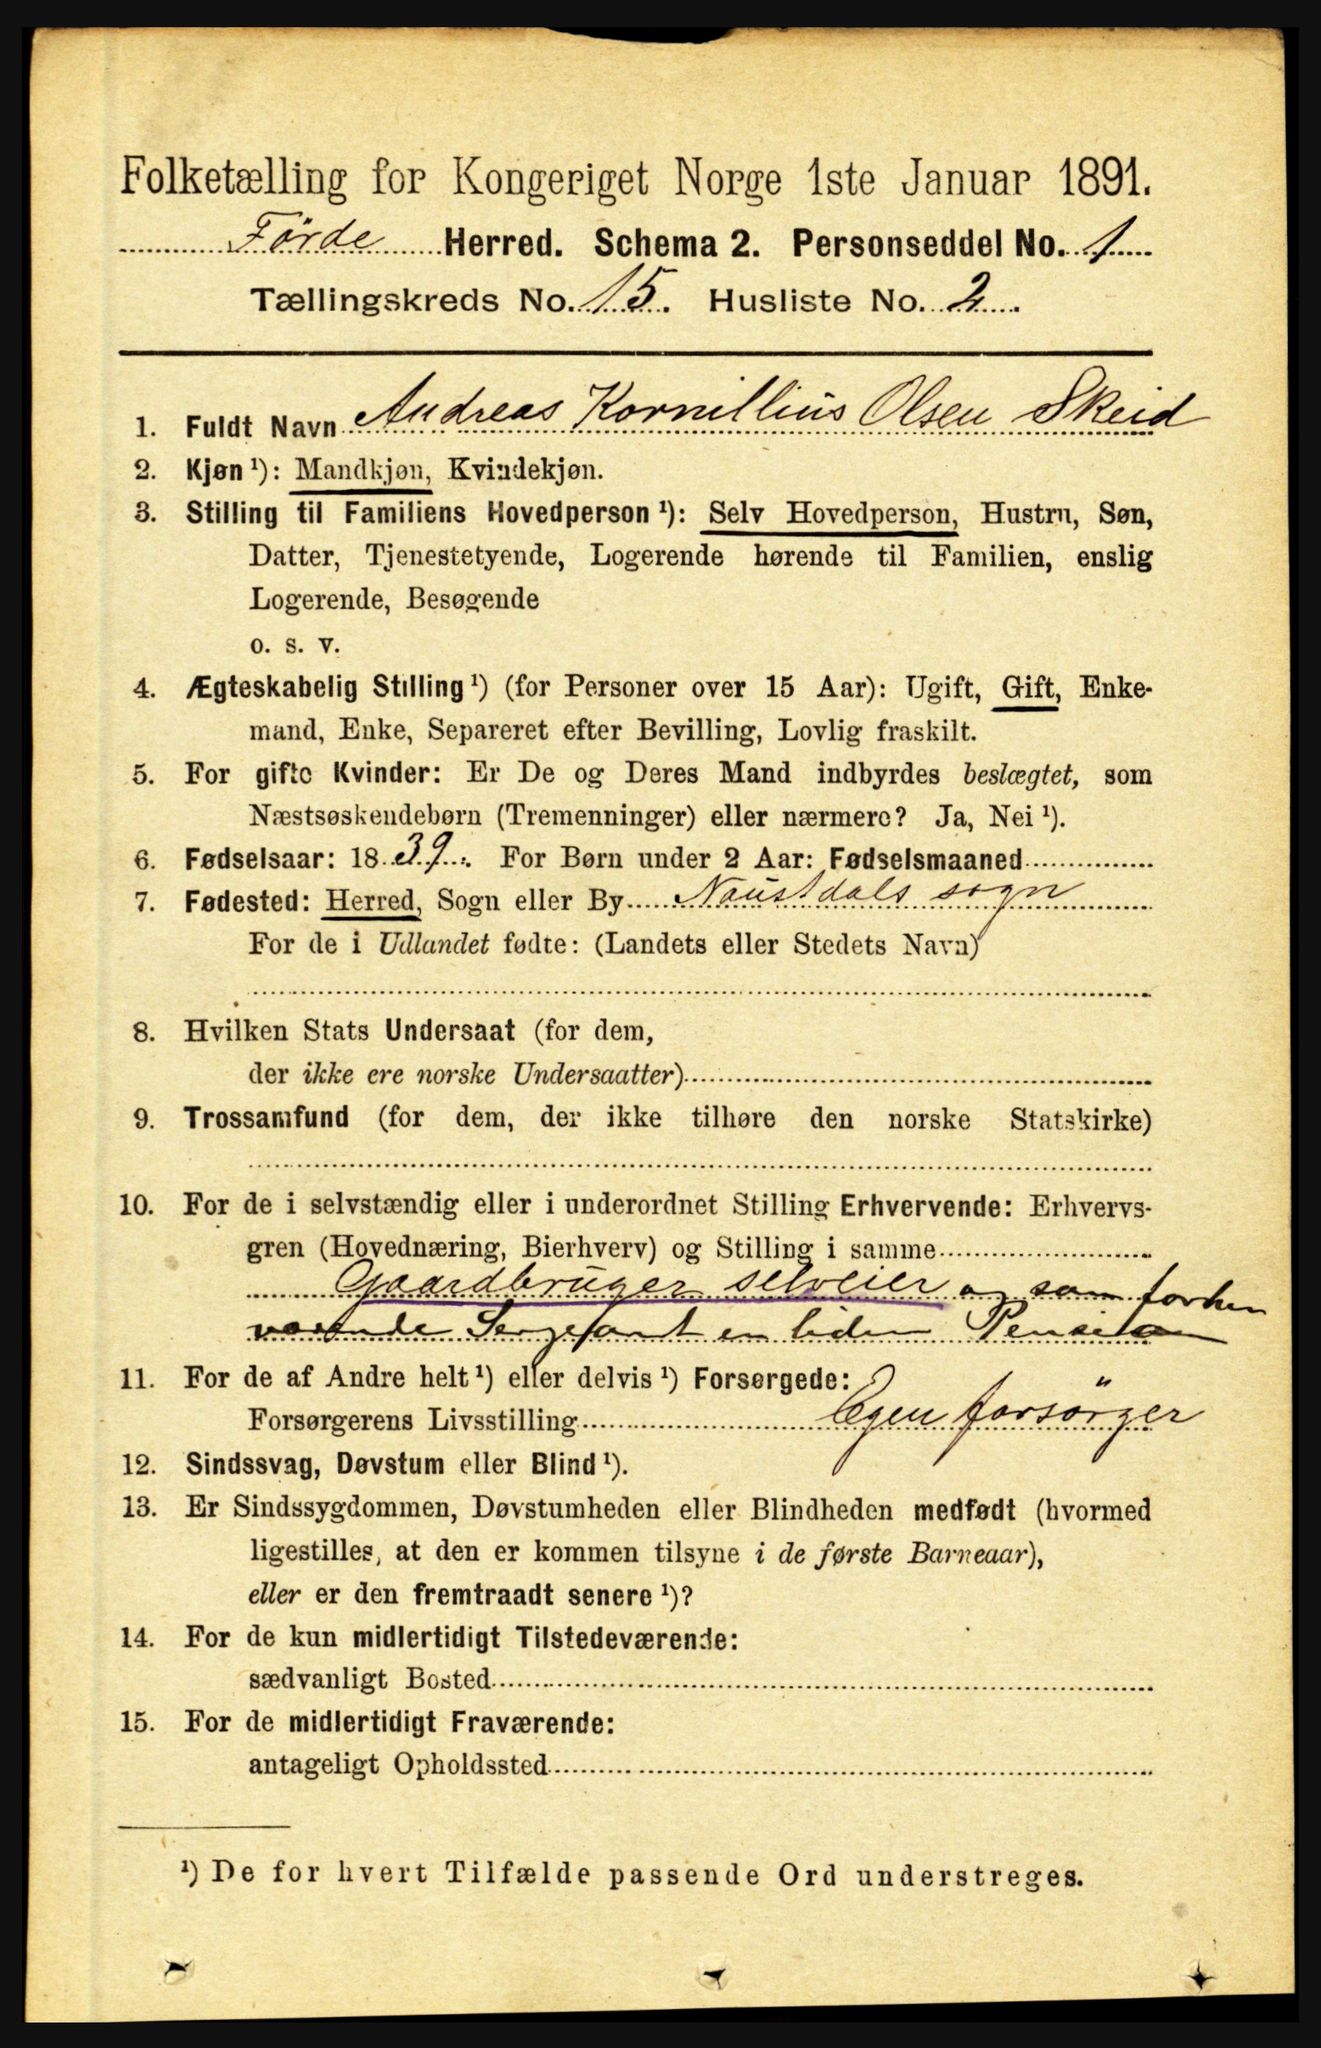 Folketælling for Kongeriget Norge 1ste Januar 1891.
Förde Herred. Schema 2. Personseddel No. 1
Tællingskreds No. 15. Husliste No. 2.
1. Fuldt Navn Andreas Kornillius Olsen Skeid
2. Kjøn ¹): Mandkjøn, Kvindekjøn.
3. Stilling til Familiens Hovedperson ¹): Selv Hovedperson, Hustru, Søn,
Datter, Tjenestetyende, Logerende hørende til Familien, enslig
Logerende, Besøgende
o. s. v.
4. Ægteskabelig Stilling ¹) (for Personer over 15 Aar): Ugift, Gift, Enke-
mand, Enke, Separeret efter Bevilling, Lovlig fraskilt.
5. For gifte Kvinder: Er De og Deres Mand indbyrdes beslægtet, som
Næstsøskendebørn (Tremenninger) eller nærmere? Ja, Nei ¹).
6. Fødselsaar: 1839. For Børn under 2 Aar: Fødselsmaaned
7. Fødested: Herred, Sogn eller By Naustdals sogn
For de i Udlandet fødte: (Landets eller Stedets Navn)
8. Hvilken Stats Undersaat (for dem,
der ikke ere norske Undersaatter)
9. Trossamfund (for dem, der ikke tilhøre den norske Statskirke)
10. For de i selvstændig eller i underordnet Stilling Erhvervende: Erhvervs-
gren (Hovednæring, Bierhverv) og Stilling i samme
Gaardbruger selveier og som forhen
værende Sergeant en liden Pension
11. For de af Andre helt ¹) eller delvis ¹) Forsørgede:
Forsørgerens Livsstilling Egen forsörger
12. Sindssvag, Døvstum eller Blind ¹).
13. Er Sindssygdommen, Døvstumheden eller Blindheden medfødt (hvormed
ligestilles, at den er kommen tilsyne i de første Barneaar),
eller er den fremtraadt senere ¹)?
14. For de kun midlertidigt Tilstedeværende:
sædvanligt Bosted
15. For de midlertidigt Fraværende:
antageligt Opholdssted
¹) De for hvert Tilfælde passende Ord understreges.